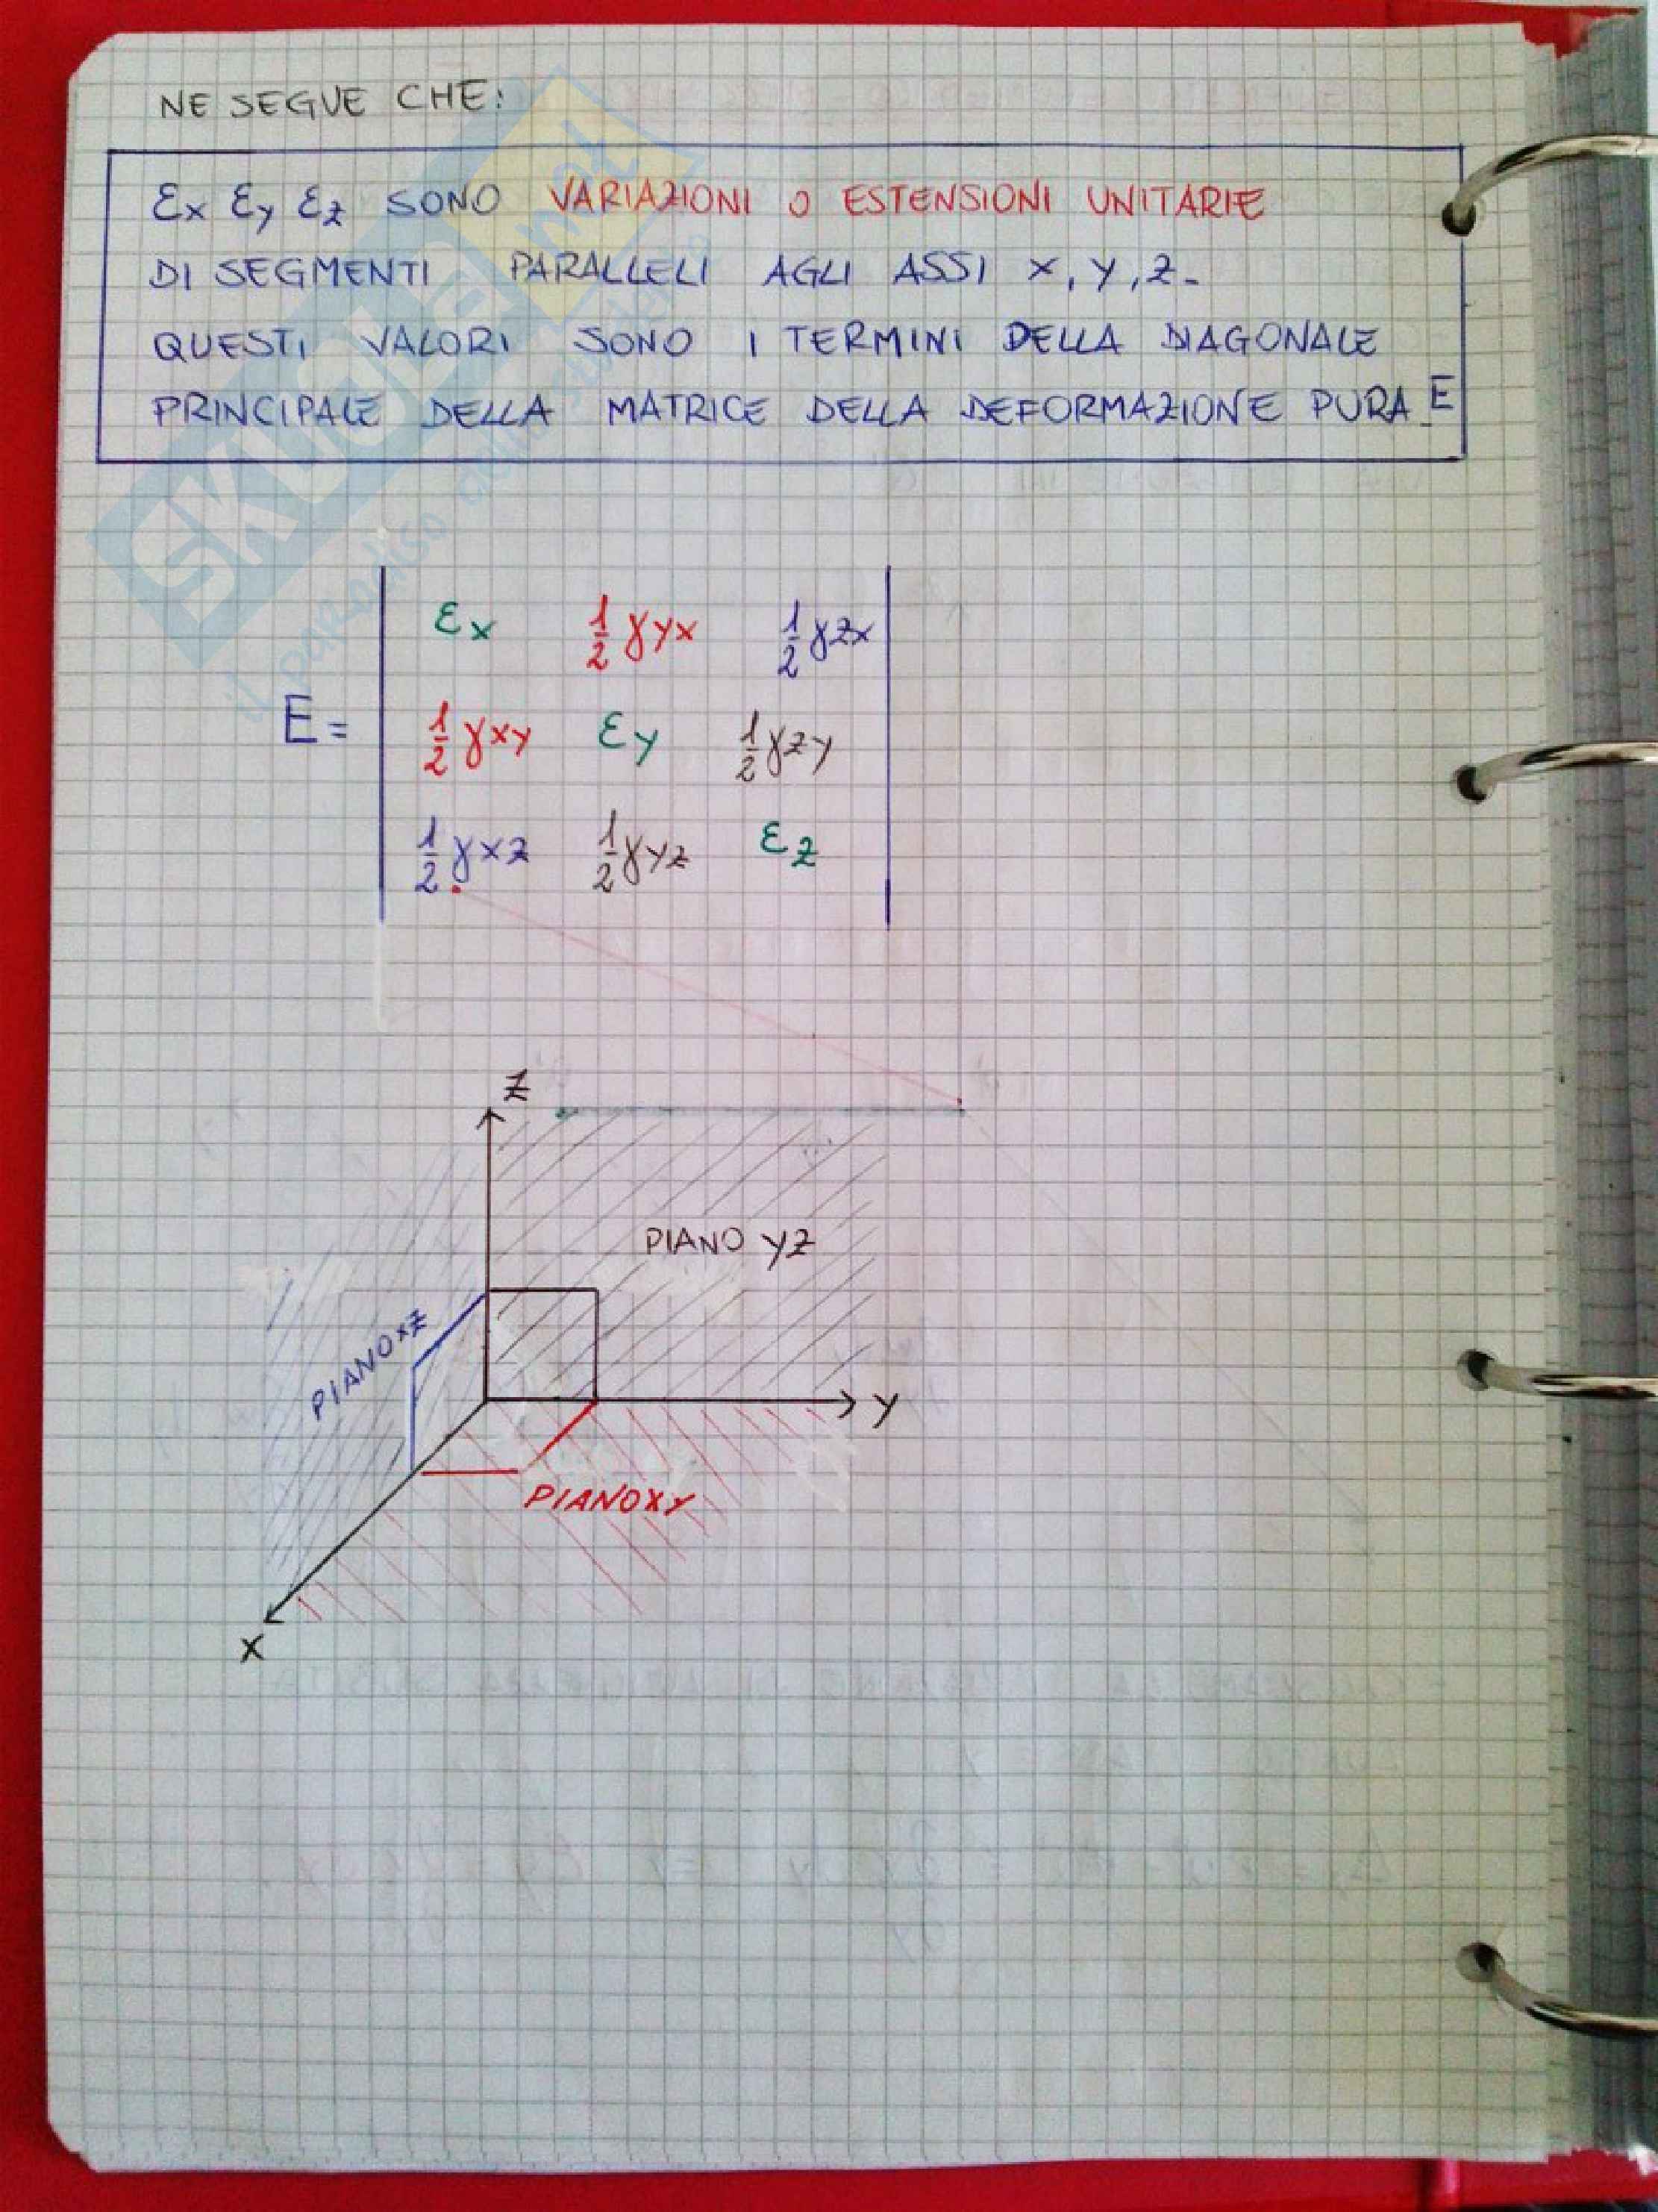 NE SEGUE CHE:
εx εy εz SONO VARIAZIONI O ESTENSIONI UNITARIE
DI SEGMENTI PARALLELI AGLI ASSI X, Y, Z.
QUESTI VALORI SONO I TERMINI DELLA DIAGONALE
PRINCIPALE DELLA MATRICE DELLA DEFORMAZIONE PURA E
εx 1/2 γyx 1/2 γzx
E = 1/2 γxy εy 1/2 γzy
1/2 γxz 1/2 γyz εz
Z
PIANO YZ
PIANO XZ
Y
PIANO XY
X
SKUOLA.net
il paradiso dello studente